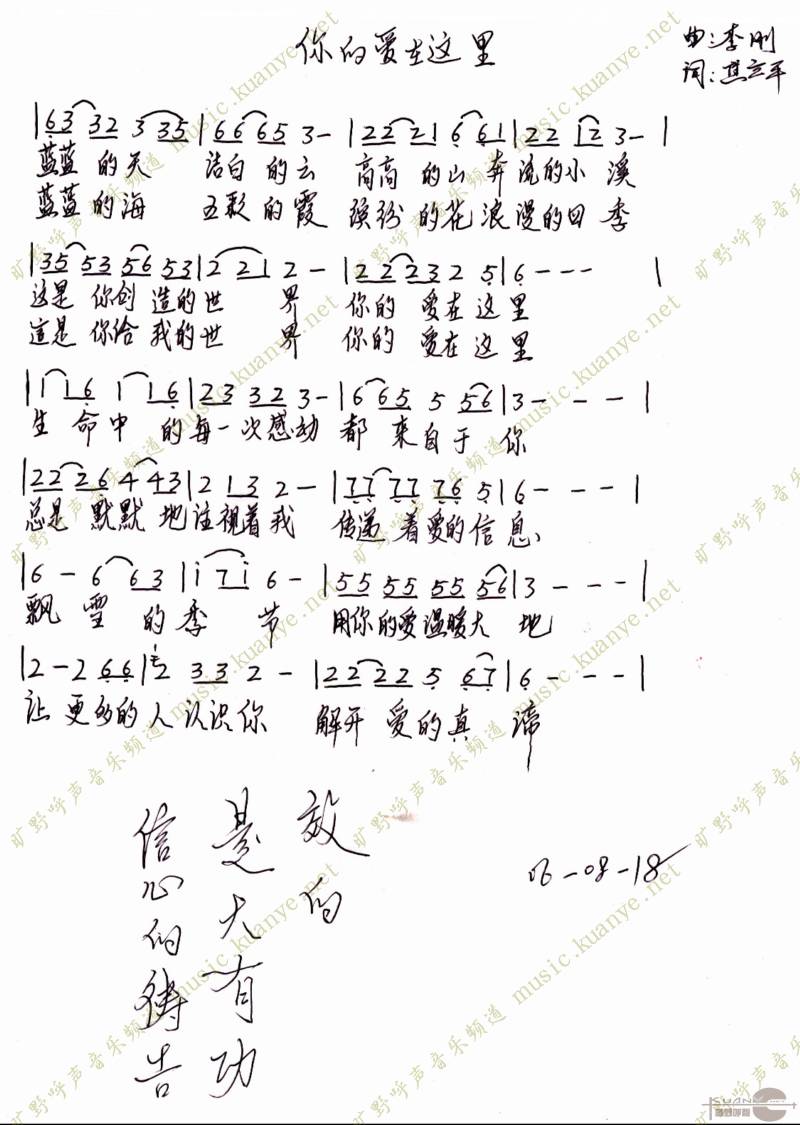 你的爱在这里
曲:李刚
词:其立平
|63 32 3 35|66 65 3-|22 21 6 61|22 12 3-|
蓝蓝 的天 洁白 的云 高高 的山 奔流的小 溪
蓝蓝 的海 五彩 的霞 缤纷 的花 浪漫的四 季
|35 53 56 53|2 21 2-|22 23 2 5|6---|
这是 你创 造的世 界 你的 爱在 这里
這是 你给 我的世 界 你的 爱在 这里
|1 16 1 16|23 32 3-|6 65 5 56|3---|
生 命中 的每一次感动 都 来自于 你
|22 26 4 43|2 13 2-|77 77 76 5|6---|
总是 默默 地注视着我 传递 着爱的信息、
|6- 6 63|i 7i 6-|55 55 55 56|3---|
飘 雪 的 季 节 用你的爱温暖大 地
|2-2 66|2 33 2-|22 22 5 67|6---|
让 更多的人认识你 解开 爱的真 谛
信心的祷告
是大有功
效的
06-08-18
旷野呼声音乐频道 music.kuanye.net
KUANYE.NET
旷野呼声